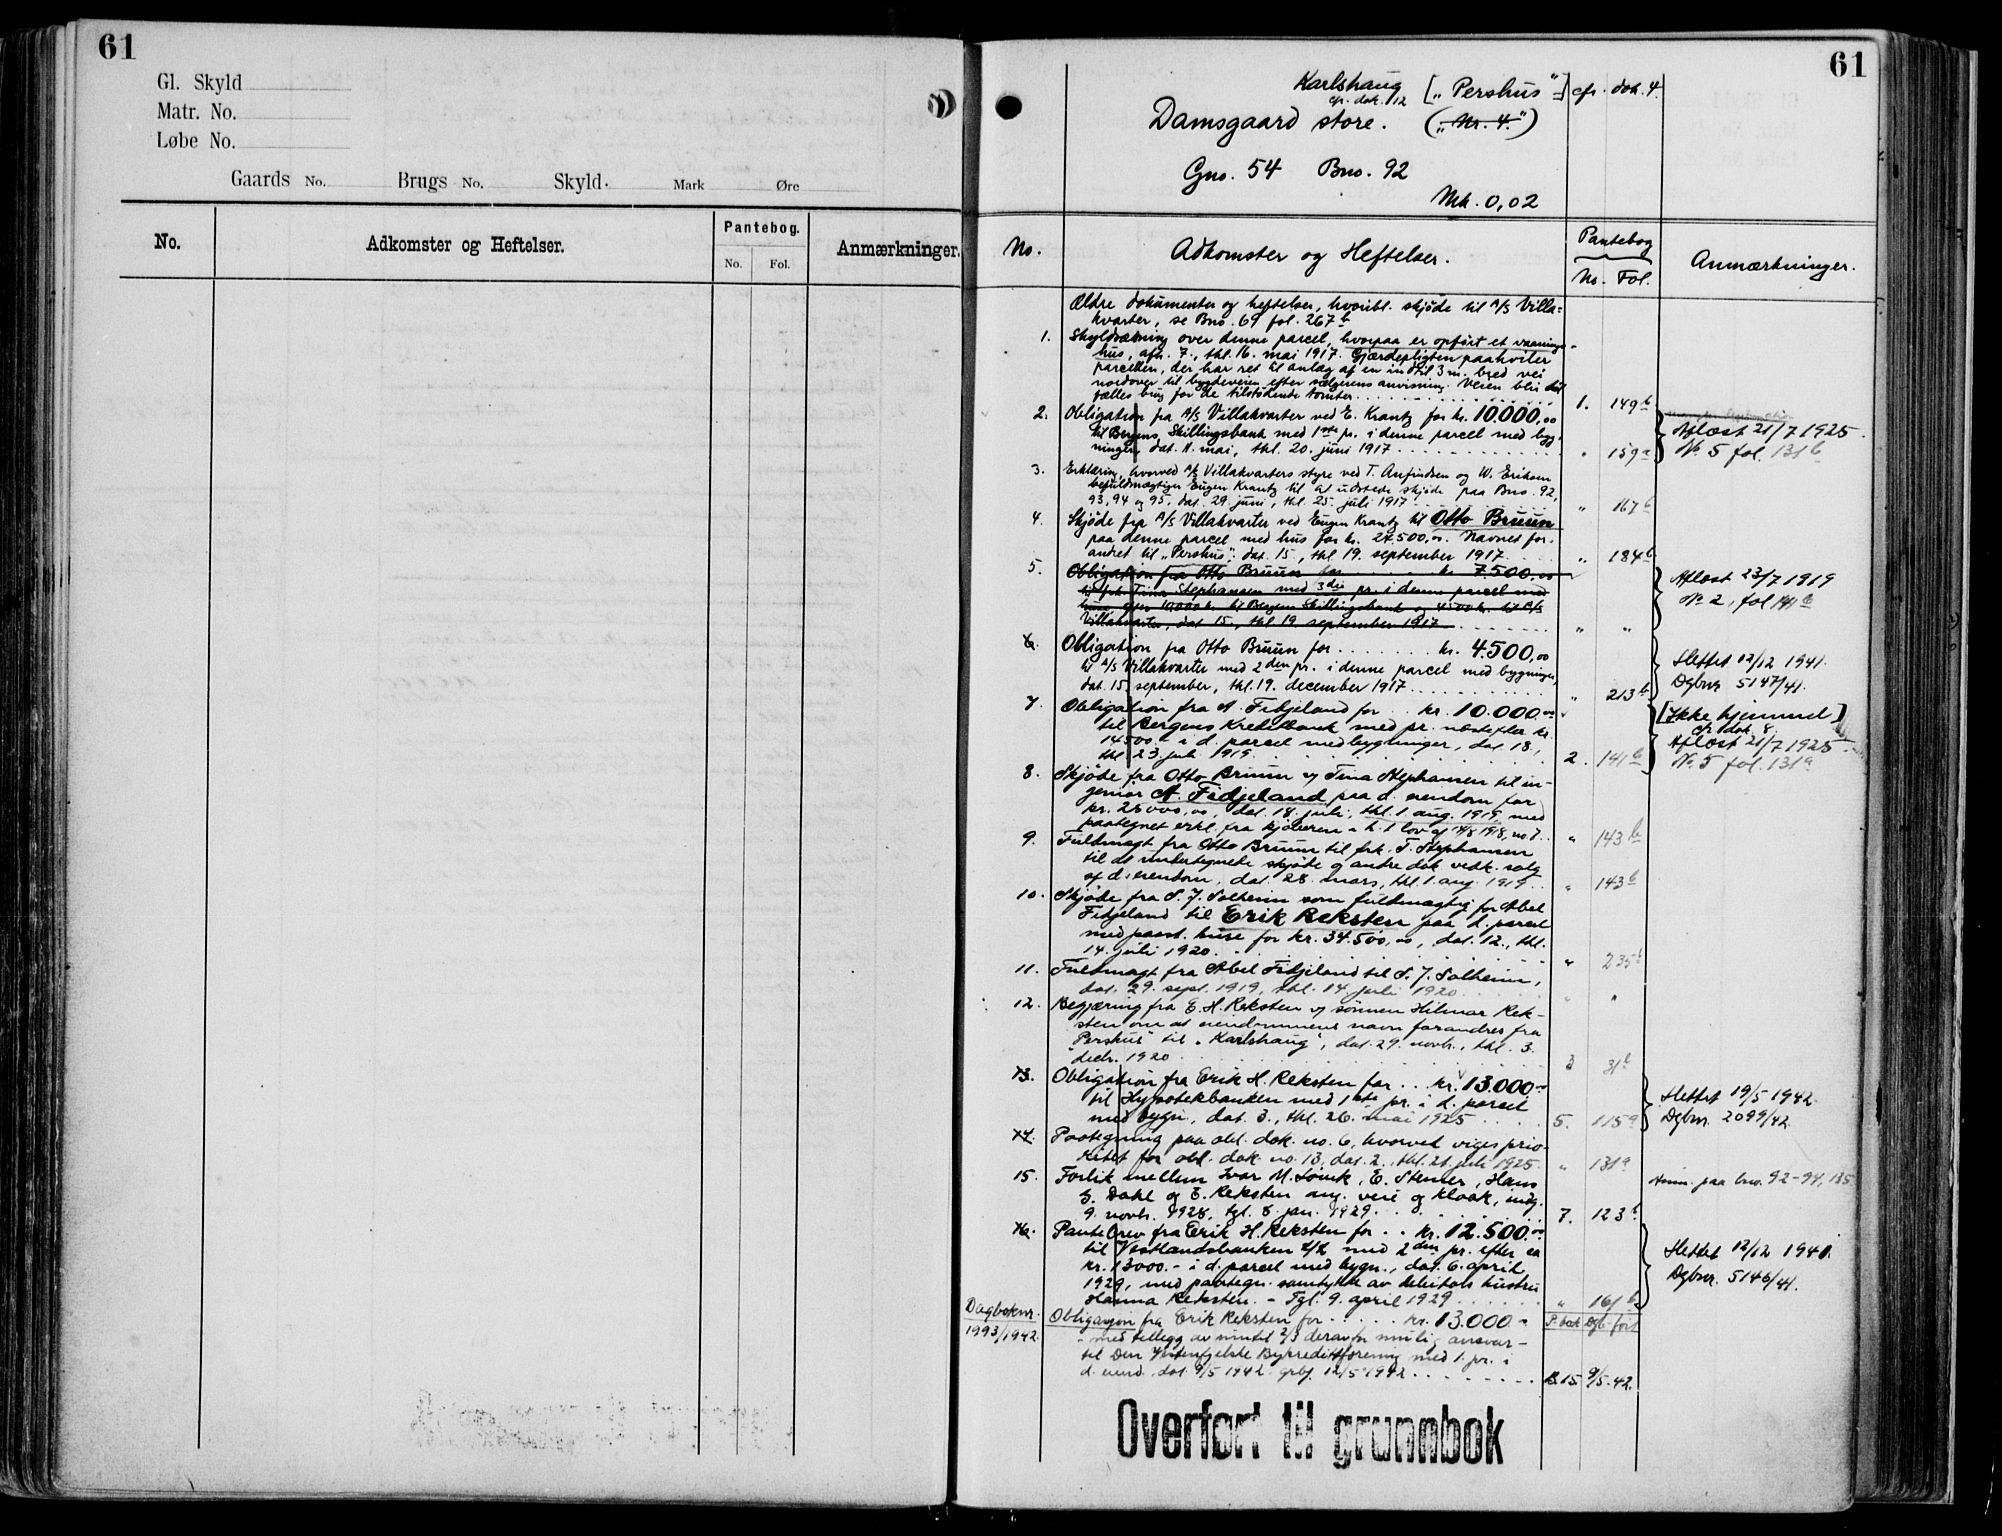 61
Gl. Skyld
Matr. No.
Løbe No.
Gaards No. Brugs No. Skyld. Mark Øre
No. Adkomster og Heftelser. Pantebog. Anmærkninger.
No. Fol.
61
Karlshaug [„Pershus"] cfr. dok. 4.
cfr. dok. 12
Damsgaard store. („Nr. 4.")
Gno. 54 Bno. 92
Mk. 0,02
No. Adkomster og Heftelser. Pantebog Anmærkninger.
No. Fol.
Ældre dokumenter og heftelser, hvoribl. skjøde til A/S Villa=
kvarter, se Bno. 69 fol. 267b
1. Skyldsætning over denne parcel, hvorpaa er opført et vaanings-
hus, afh. 7., thl. 16. mai 1917. Gjærdepligten paahviler
parcellen, der har ret til anlæg af en indtil 3 m. bred vei
nordover til bygdeveien efter sælgerens anvisning. Veien blir til
fælles brug for de tilstødende tomter. 1. 149b
2. Obligation fra A/S Villakvarter ved E. Krantz for kr. 10.000,00
til Bergens Skillingsbank med 1ste pr. i denne parcel med byg-
ninger, dat. 11. mai, thl. 20. juni 1917 " 159a
Aflæst 21/7 1925
No. 5 fol. 131b
3. Erklæring, hvorved A/S Villakvarters styre ved T. Anfindsen og W. Eriksen
befuldmægtiger Eugen Krantz til at udstede skjøde paa Bno. 92,
93, 94 og 95, dat. 29. juni, thl. 25. juli 1917 " 167b
4. Skjøde fra A/S Villakvarter ved Eugen Krantz til Otto Bruun
paa denne parcel med hus for kr. 27.500,00. Navnet for-
andret til „Pershus", dat. 15., thl. 19. september 1917 " 184b
5. Obligation fra Otto Bruun for kr. 7.500,00
til frk. Tina Stephansen med 3die pr. i denne parcel med
huse efter 10.000 kr. til Bergens Skillingsbank og 4500 kr. til A/S
Villakvarter, dat. 15., thl. 19. september 1917 " "
Aflæst 23/7 1919
No. 2, fol 141b
6. Obligation fra Otto Bruun for kr. 4.500,00
til A/S Villakvarter med 2den pr. i denne parcel med bygninger,
dat. 15. september, thl. 19. december 1917 " 213b
Slettet 12/12 1941.
Dgbnr. 5147/41.
7. Obligation fra A. Fidjeland for kr. 10.000,00
til Bergens Kreditbank med pr. næstefter kr.
14500.- i d. parcel med bygninger, dat. 18.,
thl. 23. juli 1919 2. 141b
[Ikke hjemmel]
cfr. dok. 8.
Aflæst 21/7 1925
No. 5 fol. 131a
8. Skjøde fra Otto Bruun og Tina Stephansen til in-
geniør A. Fidjeland paa d. eiendom for
kr. 25000,00, dat. 18. juli, thl. 1. aug. 1919, med
paategnet erkl. fra kjøberen i h. t. lov af 14/8 1918, no 7. " 143b
9. Fuldmagt fra Otto Bruun til frk. T. Stephansen
til at undertegnede skjøde og andre dok. vedk. salg
af d. eiendom, dat. 28. mars, thl. 1. aug. 1919 " 143b
10. Skjøde fra S. J. Solheim som fuldmægtig for Abel
Fidjeland til Erik Reksten paa d. parcel
med paast. huse for kr. 34.500,00, dat. 12., thl.
14. juli 1920 " 235b
11. Fuldmagt fra Abel Fidjeland til S. J. Solheim,
dat. 29. sept. 1919, thl. 14. juli 1920 " "
12. Begjæring fra E. H. Reksten og sønnen Hilmar Rek-
sten om at eiendommens navn forandres fra
"Pershus" til „Karlshaug", dat. 29. novb., thl. 3.
decbr. 1920 3 31b
13. Obligation fra Erik H. Reksten for kr. 13.000,-
til Hypotekbanken med 1ste pr. i d. parcel
med bygn., dat. 3., thl. 26. mai 1925 5. 115a
Slettet 19/5 1942.
Dgbnr. 2099/42
14. Paategning paa obl. dok. no. 6, hvorved viges prio-
ritet for obl. dok. no. 13, dat. 2., thl. 21. juli 1925 " 131a
15. Forlik mellem Ivar M. , E. Stenter, Hans
G. Dahl og E. Reksten ang. vei og kloak, indg.
9. novbr. 1928, tgl. 8. jan. 1929 7. 123b
Anm. paa bno. 92-94, 135
16. Pantebrev fra Erik H. Reksten for kr. 12.500,00
til Vestlandsbanken A/S med 2den pr. efter ca
kr. 13000.- i d. parcel med bygn., dat. 6. april
1929, med paategn. samtykke av debitors hustru
Hanna Reksten. - Tgl. 9. april 1929 " 161b
Slettet 12/12 1941.
Dgbnr. 5146/41.
Dagboknr. 1993/1942. P. bok Dgb. ført
Obligasjon fra Erik Reksten for kr. 13.000,-
- med tillegg av inntil 2/3 derav for mulig ansvar -
til Den Vestenfjelske Bykreditforening med 1. pr. i
d. eiend., dat. 9/5 1942. grbf. 12/5 1942 B. 15. 9/5-42.
Overført til grunnbok